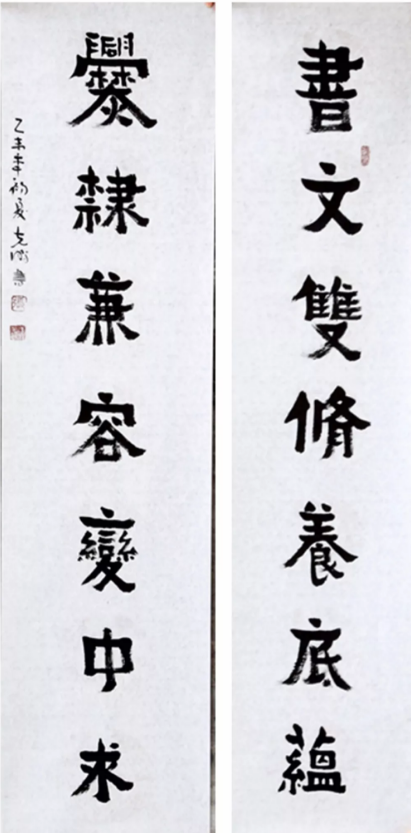 書文雙脩養底蘊
爨隸兼容變中求
乙未年初夏克
書